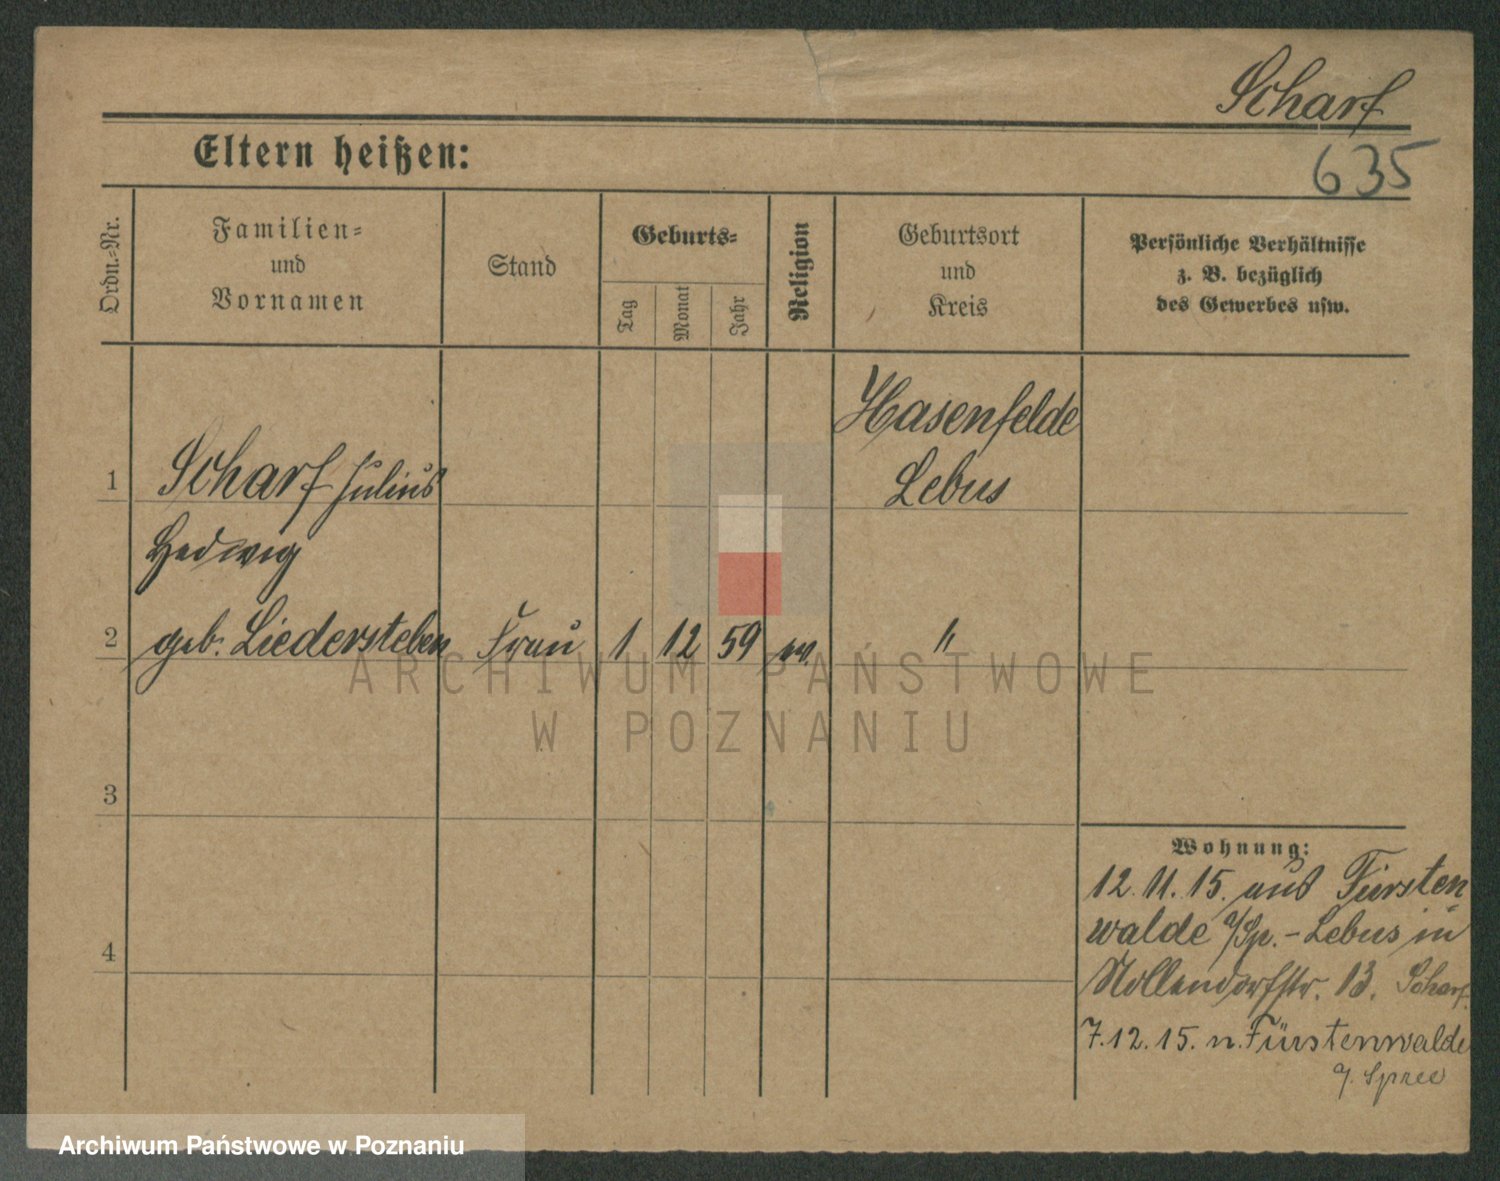 Scharf
635
Eltern heißen:
Ordn.-Nr.
Familien-
und
Vornamen
Stand
Geburts-
Tag
Monat
Jahr
Religion
Geburtsort
und
Kreis
Persönliche Verhältnisse
z. B. bezüglich
des Gewerbes usw.
Hasenfelde
1 Scharf Julius Lebus
Hedwig
2 geb. Liedersteben Frau 1 12 59 ev. "
ARCHIWUM PAŃSTWOWE
W POZNANIU
3
4
Wohnung:
12.11.15. aus Fürsten
walde a/Sp. - Lebus in
Nollendorfstr. 13. Scharf.
7.12.15. n. Fürstenwalde
a. Spree
Archiwum Państwowe w Poznaniu